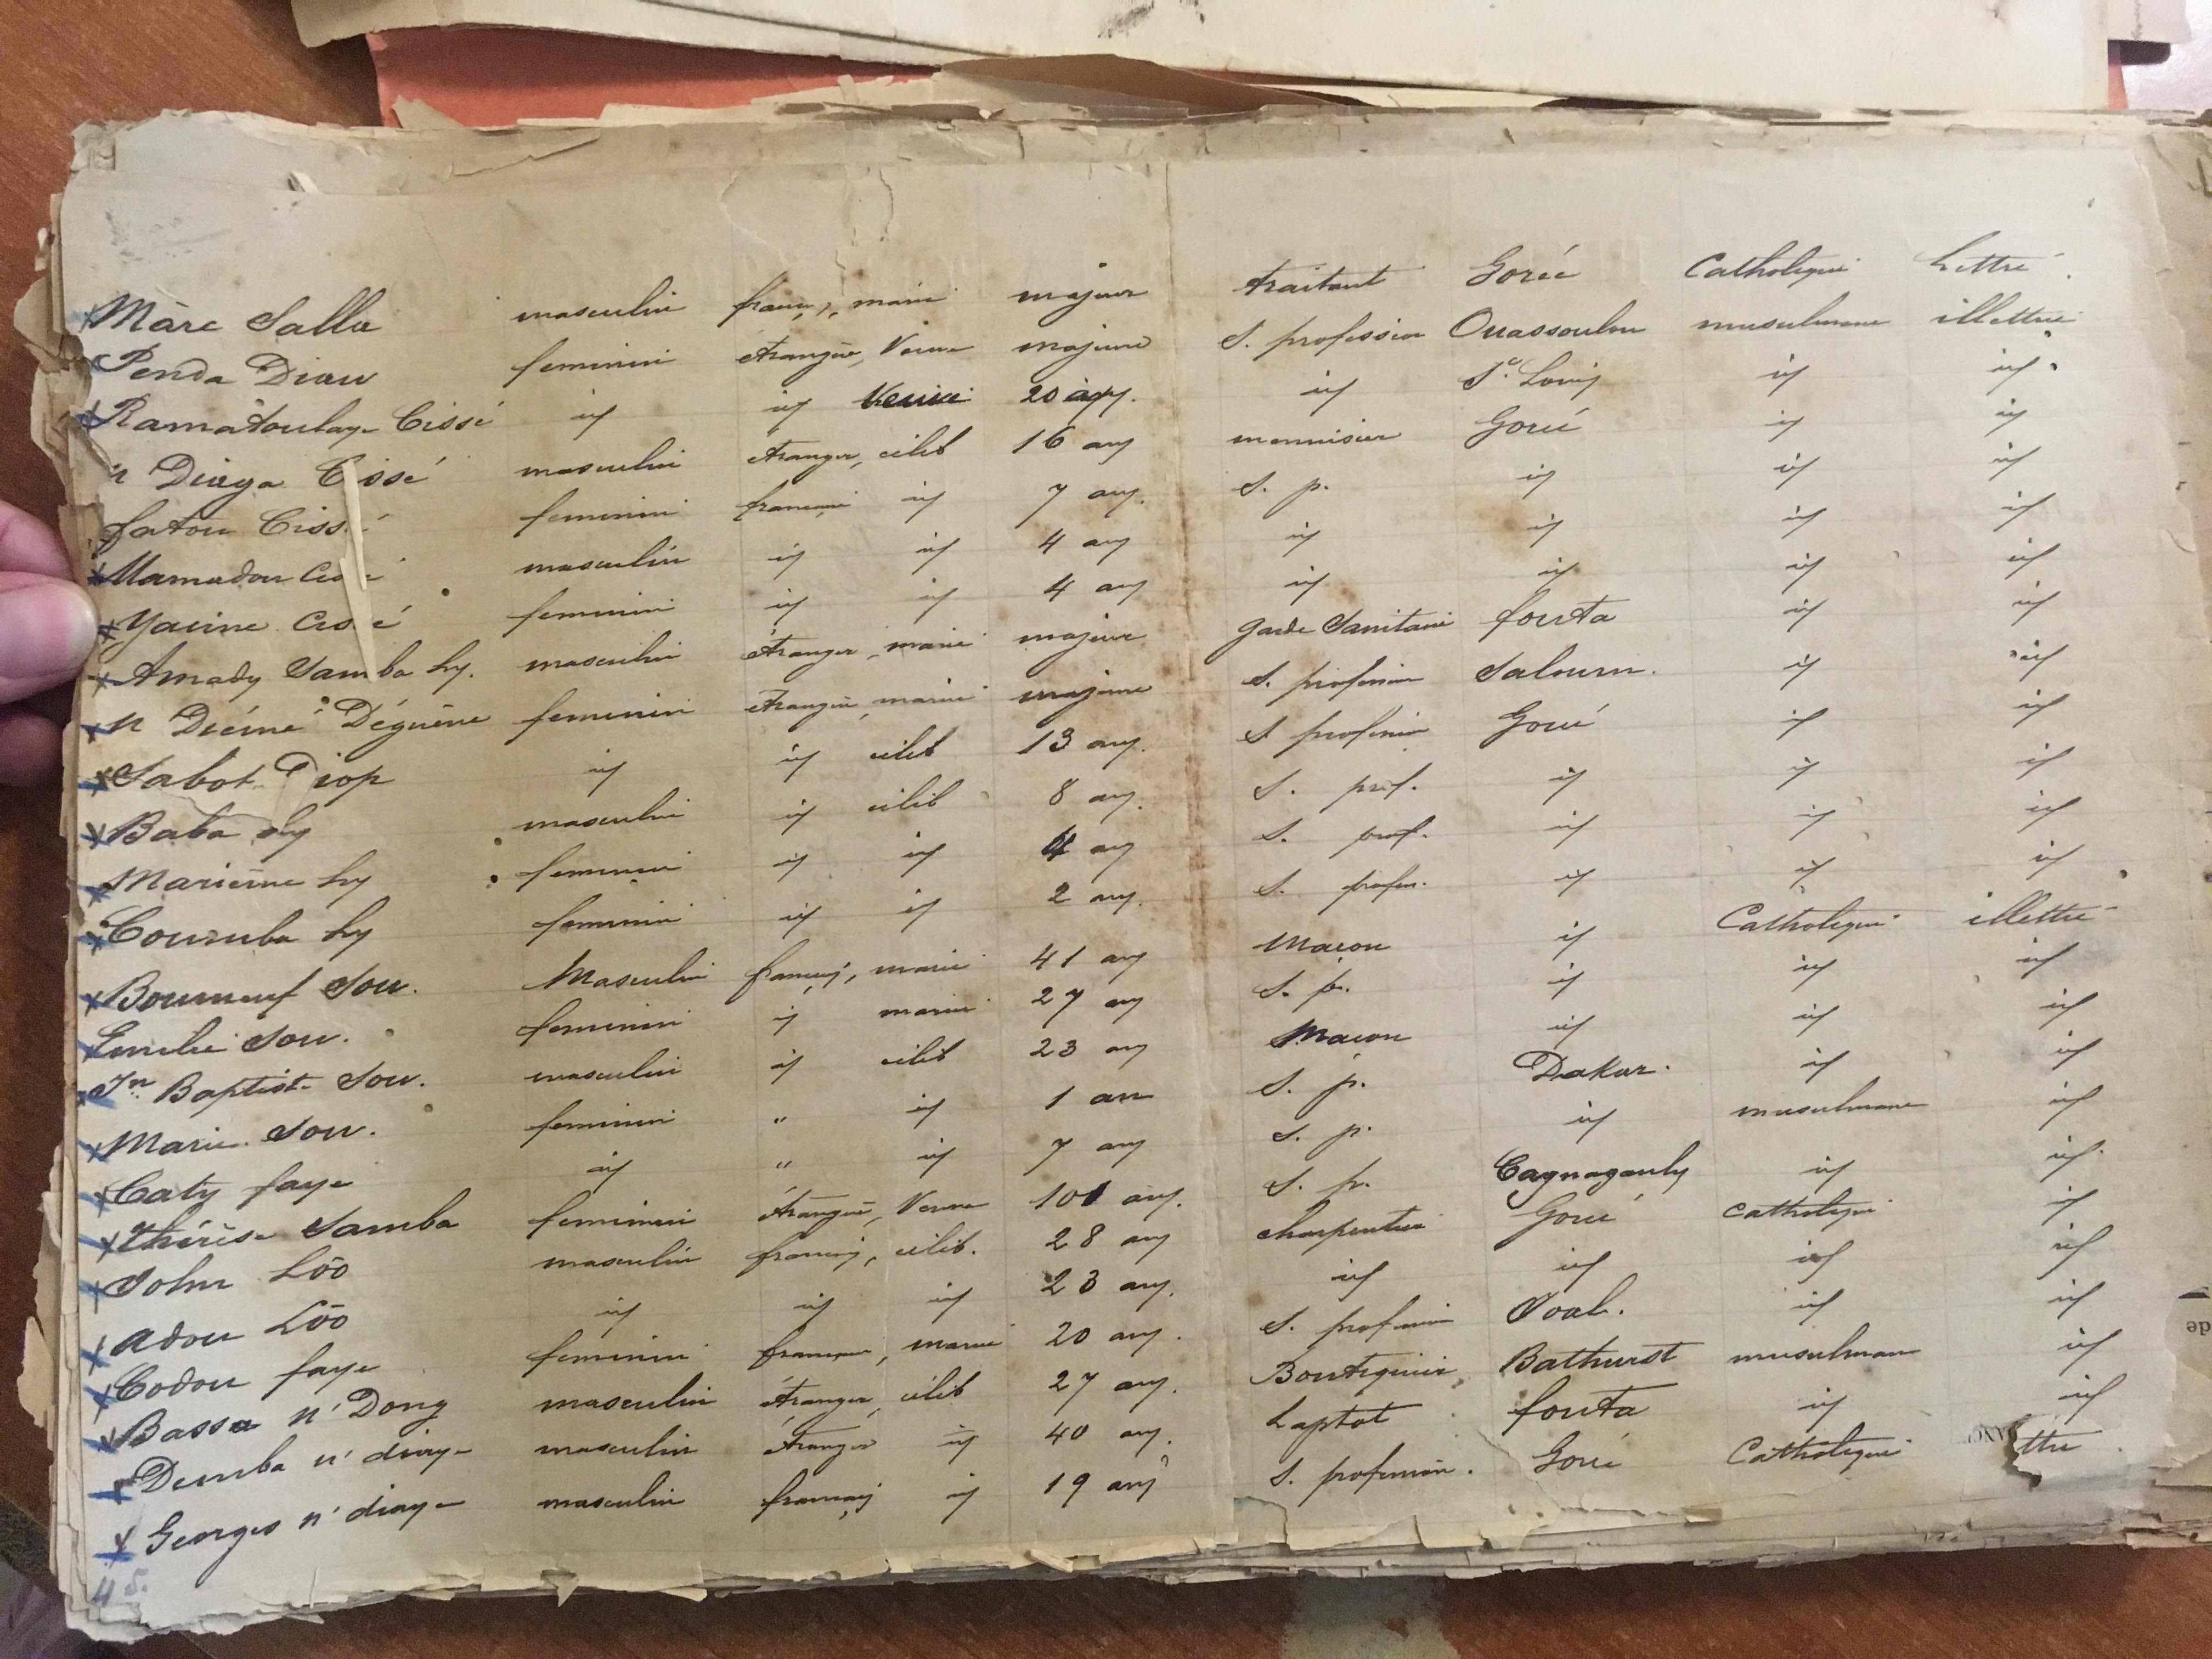 Marc Salla masculin françs, marié majeur traitant Gorée Catholique Lettré
Penda Diau feminin étrangère, Veuve majeure S. profession Ouassoulou musulmane illettré
Ramatoulaye Cissé id id Veuve 20 ans. id St. Louis id id
n Diaga Cissé masculin étranger, célib 16 ans menuisier Gorée id id
fatou Cissé feminin française id 7 ans. S. p. id id id
Mamadou Cissé masculin id id 4 ans id id id id
Yacine Cissé feminin id id 4 ans id id id id
Amady Samba Ly. masculin étranger, marié majeur garde Sanitaire fouta id id
n Diémé Déguène feminin étrangère, mariée majeure S. profession Saloum. id id
Sabot Diop id id célib 13 ans. S. profession Gorée id id
Baba Ly masculin id célib 8 ans. S. prof. id id id
Marième Ly feminin id id 4 ans S. prof. id id id
Coumba Ly feminin id id 2 ans. S. profes. id id id
Bourneuf Sow. Masculin français, marié 41 ans Maçon id Catholique illettré
Emilie Sow. feminin id mariée 27 ans S. p. id id id
Jn Baptiste Sow. masculin id célib 23 ans Maçon id id id
Marie Sow. feminin " id 1 an S. p. Dakar. id id
Caty faye id " id 7 ans S. p. id musulmane id
Thérèse Samba feminin étrangère, Veuve 101 ans. S. p. id id
John Lôo masculin français, célib. 28 ans charpentier Gorée catholique id
Adou Lôo id id id 23 ans. id id id id
Codou faye feminin française, mariée 20 ans. S. profession Joal. id id
Bassa n'Dong masculin étranger, célib 27 ans. Boutiquier Bathurst musulman id
Demba n'diaye masculin étranger id 40 ans. Laptot fouta id id
Georges n'diaye masculin français id 19 ans S. profession. Gorée Catholique ttré
45.
de